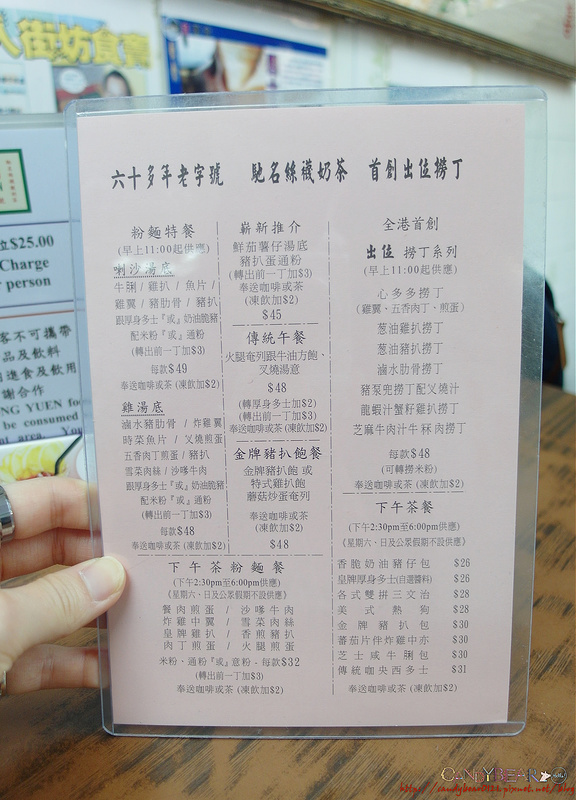 人街坊食賣
$25.00
Charge
person
客不可攜帶
品及飲料
進食及飲用
謝合作
NG YUEN
be consumed
六十多年老字號 馳名絲襪奶茶 首創出位撈丁
粉麵特餐
(早上11:00起供應)
喇沙湯底
牛脷 / 雞扒 / 魚片 /
雞翼 / 豬肋骨 / 豬扒
跟厚身多士『或』奶油脆豬
配米粉『或』通粉
(轉出前一丁加$3)
每款$49
奉送咖啡或茶 (凍飲加$2)
雞湯底
滷水豬肋骨 / 炸雞翼
時菜魚片 / 叉燒煎蛋
五香肉丁煎蛋 / 豬扒
雪菜肉絲 / 沙嗲牛肉
跟厚身多士『或』奶油脆豬
配米粉『或』通粉
(轉出前一丁加$3)
每款$48
奉送咖啡或茶 (凍飲加$2)
嶄新推介
鮮茄薯仔湯底
豬扒蛋通粉
(轉出前一丁加$3)
奉送咖啡或茶
(凍飲加$2)
$45
傳統午餐
火腿奄列跟牛油方飽、
叉燒湯意
$48
(轉厚身多士加$2)
(轉出前一丁加$3)
奉送咖啡或茶 (凍飲加$2)
金牌豬扒飽餐
金牌豬扒飽 或
特式雞扒飽
蘑菇炒蛋奄列
奉送咖啡或茶
(凍飲加$2)
$48
下午茶粉麵餐
(下午2:30pm至6:00pm供應)
《星期六、日及公眾假期不設供應》
餐肉煎蛋 / 沙嗲牛肉
炸雞中翼 / 雪菜肉絲
皇牌雞扒 / 香煎豬扒
肉丁煎蛋 / 火腿煎蛋
米粉、通粉『或』意粉 - 每款$32
(轉出前一丁加$3)
奉送咖啡或茶 (凍飲加$2)
全港首創
出位 撈丁系列
(早上11:00起供應)
心多多撈丁
(雞翼、五香肉丁、煎蛋)
葱油雞扒撈丁
葱油豬扒撈丁
滷水肋骨撈丁
豬泵兜撈丁配叉燒汁
龍蝦汁蟹籽雞扒撈丁
芝麻牛肉汁牛冧肉撈丁
每款$48
(可轉撈米粉)
奉送咖啡或茶 (凍飲加$2)
下午茶餐
(下午2:30pm至6:00pm供應)
《星期六、日及公眾假期不設供應》
香脆奶油豬仔包 $26
皇牌厚身多士(自選醬料) $26
各式雙拼三文治 $28
美式熱狗 $28
金牌豬扒包 $30
蕃茄片伴炸雞中亦 $30
芝士咸牛脷包 $30
傳統咖央西多士 $31
奉送咖啡或茶 (凍飲加$2)
CANDYBEAR